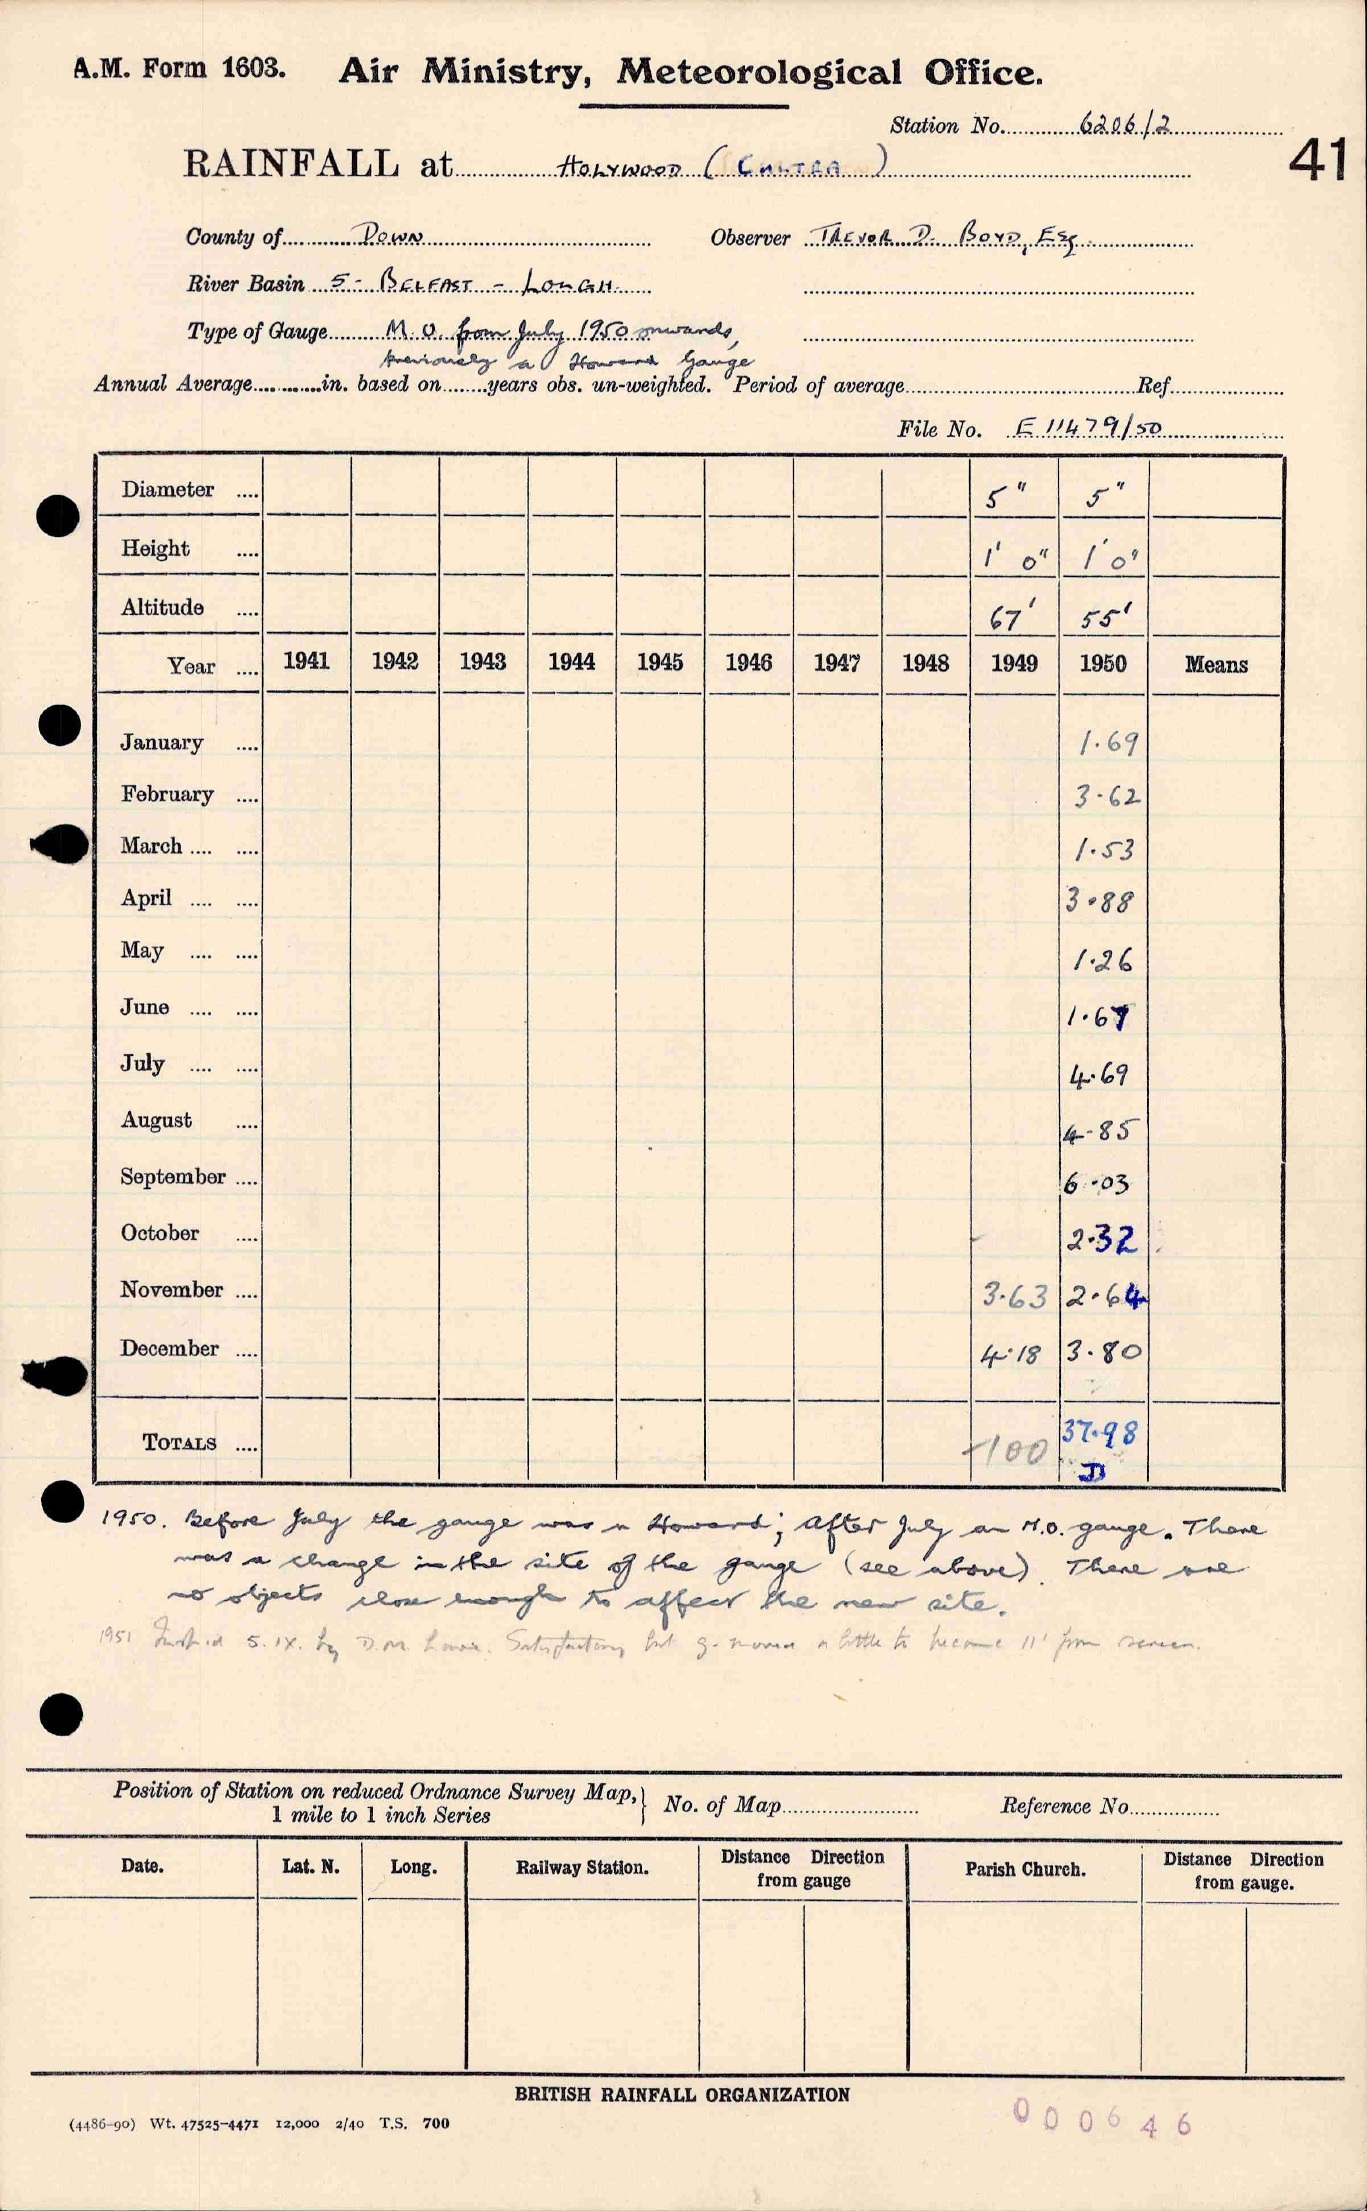 A.M. Form 1603. Air Ministry, Meteorological Office.
Station No. 6206/2
41
RAINFALL at HOLYWOOD (CULTRA)
County of DOWN Observer TREVOR D. BOYD, ESq.
River Basin 5 - BELFAST - LOUGH
Type of Gauge M.O. from July 1950 onwards,
previously a Howard Gauge
Annual Average in. based on years obs. un-weighted. Period of average Ref.
File No. E 11479/50
Diameter 5" 5"
Height 1' 0" 1' 0"
Altitude 67' 55'
Year 1941 1942 1943 1944 1945 1946 1947 1948 1949 1950 Means
January 1.69
February 3.62
March 1.53
April 3.88
May 1.26
June 1.67
July 4.69
August 4.85
September 6.03
October - 2.32
November 3.63 2.64
December 4.18 3.80
TOTALS 37.98
1950. Before July the gauge was a Howard; after July an M.O. gauge. There
was a change in the site of the gauge (see above). There are
no objects close enough to affect the new site.
1951 Insp'd 5.IX. by D.M. Satisfactory but g. moved a little to become 11' from screen.
Position of Station on reduced Ordnance Survey Map,} No. of Map Reference No.
1 mile to 1 inch Series
Date. Lat. N. Long. Railway Station. Distance Direction from gauge Parish Church. Distance Direction from gauge.
BRITISH RAINFALL ORGANIZATION
(4486-90) Wt. 47525-4471 12,000 2/40 T.S. 700
000646